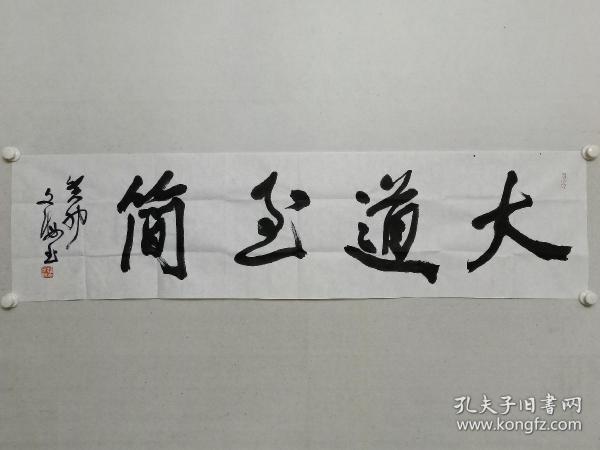 大道至简
癸卯
文海书
孔夫子旧书网
www.kongfz.com